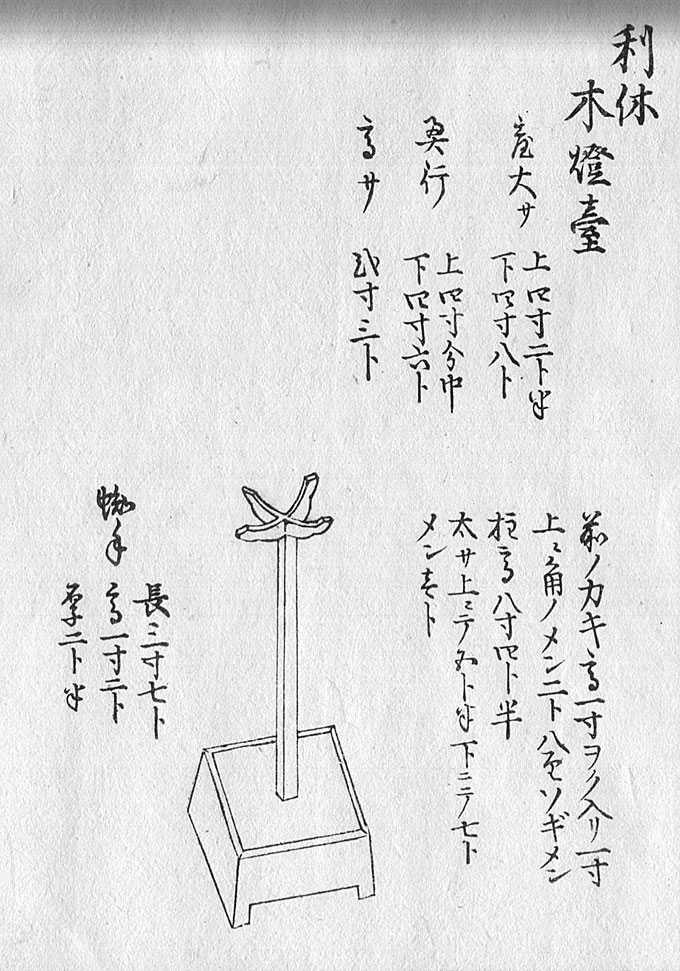 利休
木燈臺
臺大サ
上四寸二卜半
下四寸八卜
奥行
上四寸分中
下四寸六卜
高サ
弐寸三卜
前ノカキ高一寸ヲク入リ一寸
上ミ角ノメン二卜八 ソギメン
柱高八寸四卜半
太サ上ニテ五卜半下ニテ七卜
メン壱卜
蜘手
長三寸七卜
高一寸二卜
厚二卜半